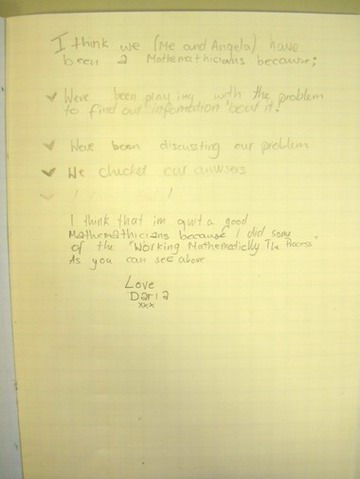 I think we (Me and Angela) have
been 2 Mathemathicians because;
✓ Were been playing with the problem
to find out infomation 'bout it!
✓ Were been discussting our problem
✓ We checked our answers
I think that im quit a good
Mathemathicians because I did some
of the "Working Mathematiclly The Process"
As you can see above
Love
Daria
xxx